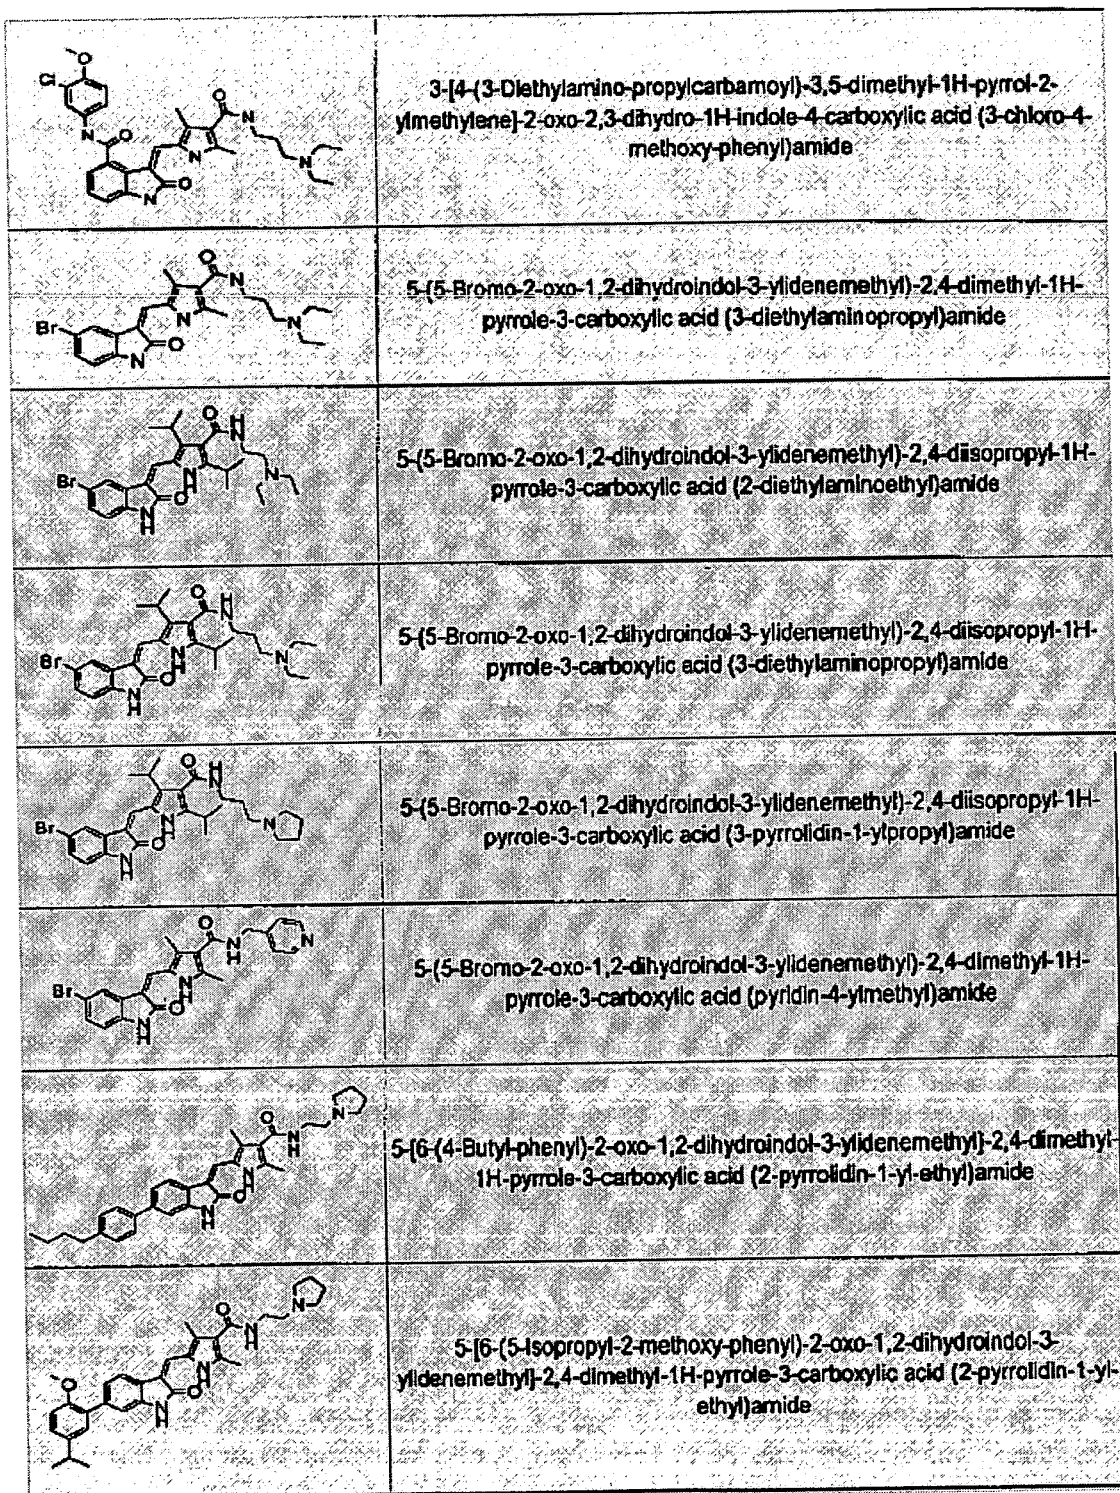 3-[4-(3-Diethylamino-propylcarbamoyl)-3,5-dimethyl-1H-pyrrol-2-
ylmethylene]-2-oxo-2,3-dihydro-1H-indole-4-carboxylic acid (3-chloro-4-
methoxy-phenyl)amide
5-(5-Bromo-2-oxo-1,2-dihydroindol-3-ylidenemethyl)-2,4-dimethyl-1H-
pyrrole-3-carboxylic acid (3-diethylaminopropyl)amide
5-(5-Bromo-2-oxo-1,2-dihydroindol-3-ylidenemethyl)-2,4-diisopropyl-1H-
pyrrole-3-carboxylic acid (2-diethylaminoethyl)amide
5-(5-Bromo-2-oxo-1,2-dihydroindol-3-ylidenemethyl)-2,4-diisopropyl-1H-
pyrrole-3-carboxylic acid (3-diethylaminopropyl)amide
5-(5-Bromo-2-oxo-1,2-dihydroindol-3-ylidenemethyl)-2,4-diisopropyl-1H-
pyrrole-3-carboxylic acid (3-pyrrolidin-1-ylpropyl)amide
5-(5-Bromo-2-oxo-1,2-dihydroindol-3-ylidenemethyl)-2,4-dimethyl-1H-
pyrrole-3-carboxylic acid (pyridin-4-ylmethyl)amide
5-[6-(4-Butyl-phenyl)-2-oxo-1,2-dihydroindol-3-ylidenemethyl]-2,4-dimethyl-
1H-pyrrole-3-carboxylic acid (2-pyrrolidin-1-yl-ethyl)amide
5-[6-(5-Isopropyl-2-methoxy-phenyl)-2-oxo-1,2-dihydroindol-3-
ylidenemethyl]-2,4-dimethyl-1H-pyrrole-3-carboxylic acid (2-pyrrolidin-1-yl-
ethyl)amide